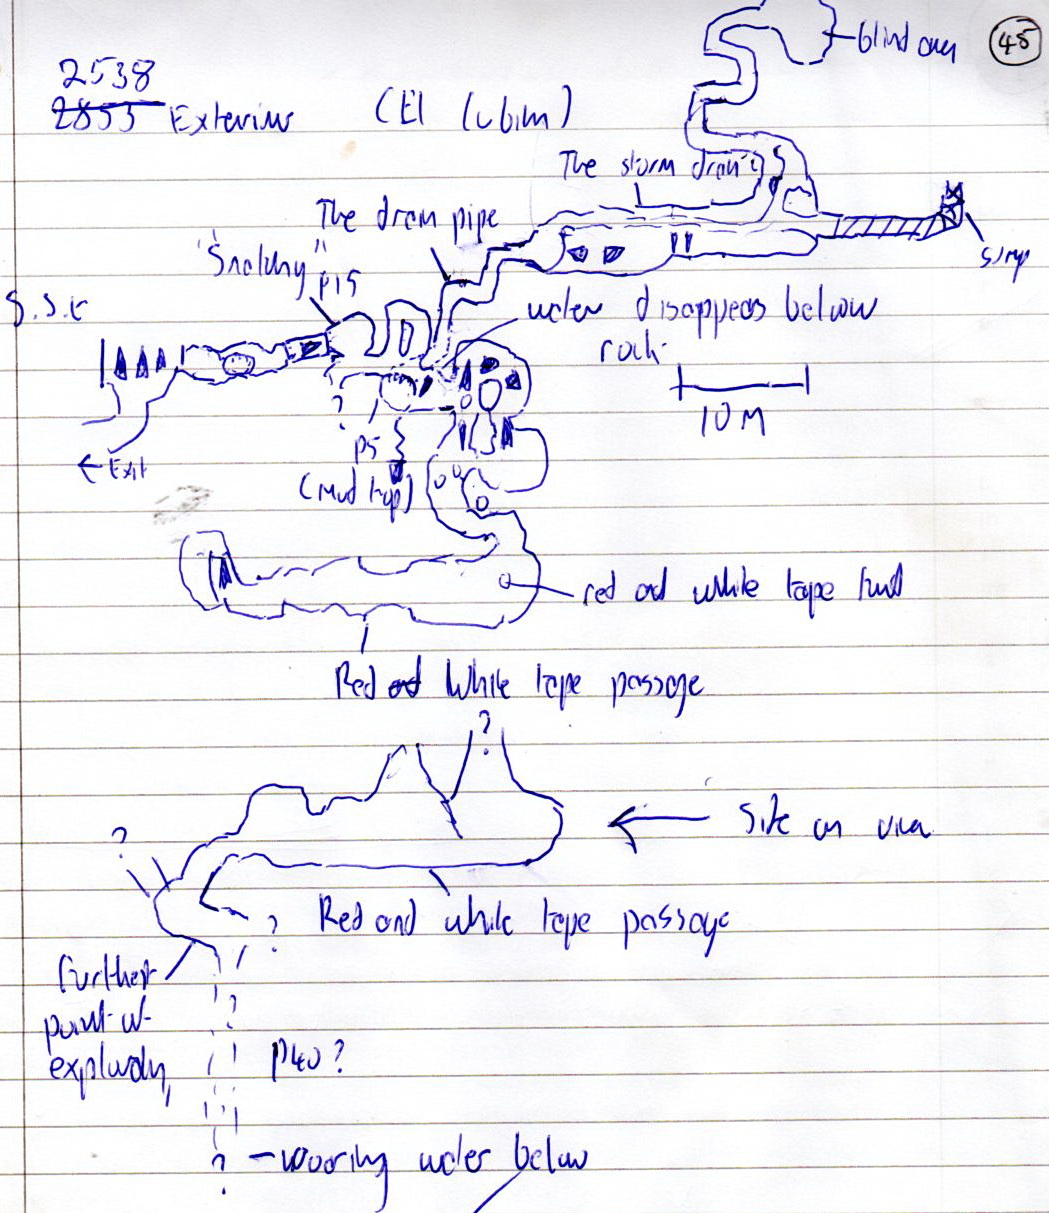 45
blind aven
2538
2853 Exterior (El Cubim)
The storm drain
The drain pipe
sump
"Snatchy"
P15
S.S.E
water disappears below
rock
?
10 M
P5
(Mud trap)
← Exit
red and white tape fund
Red and White tape passage
?
Site an view
?
Red and white tape passage
?
further
point of
?
P40?
? - roaring water below